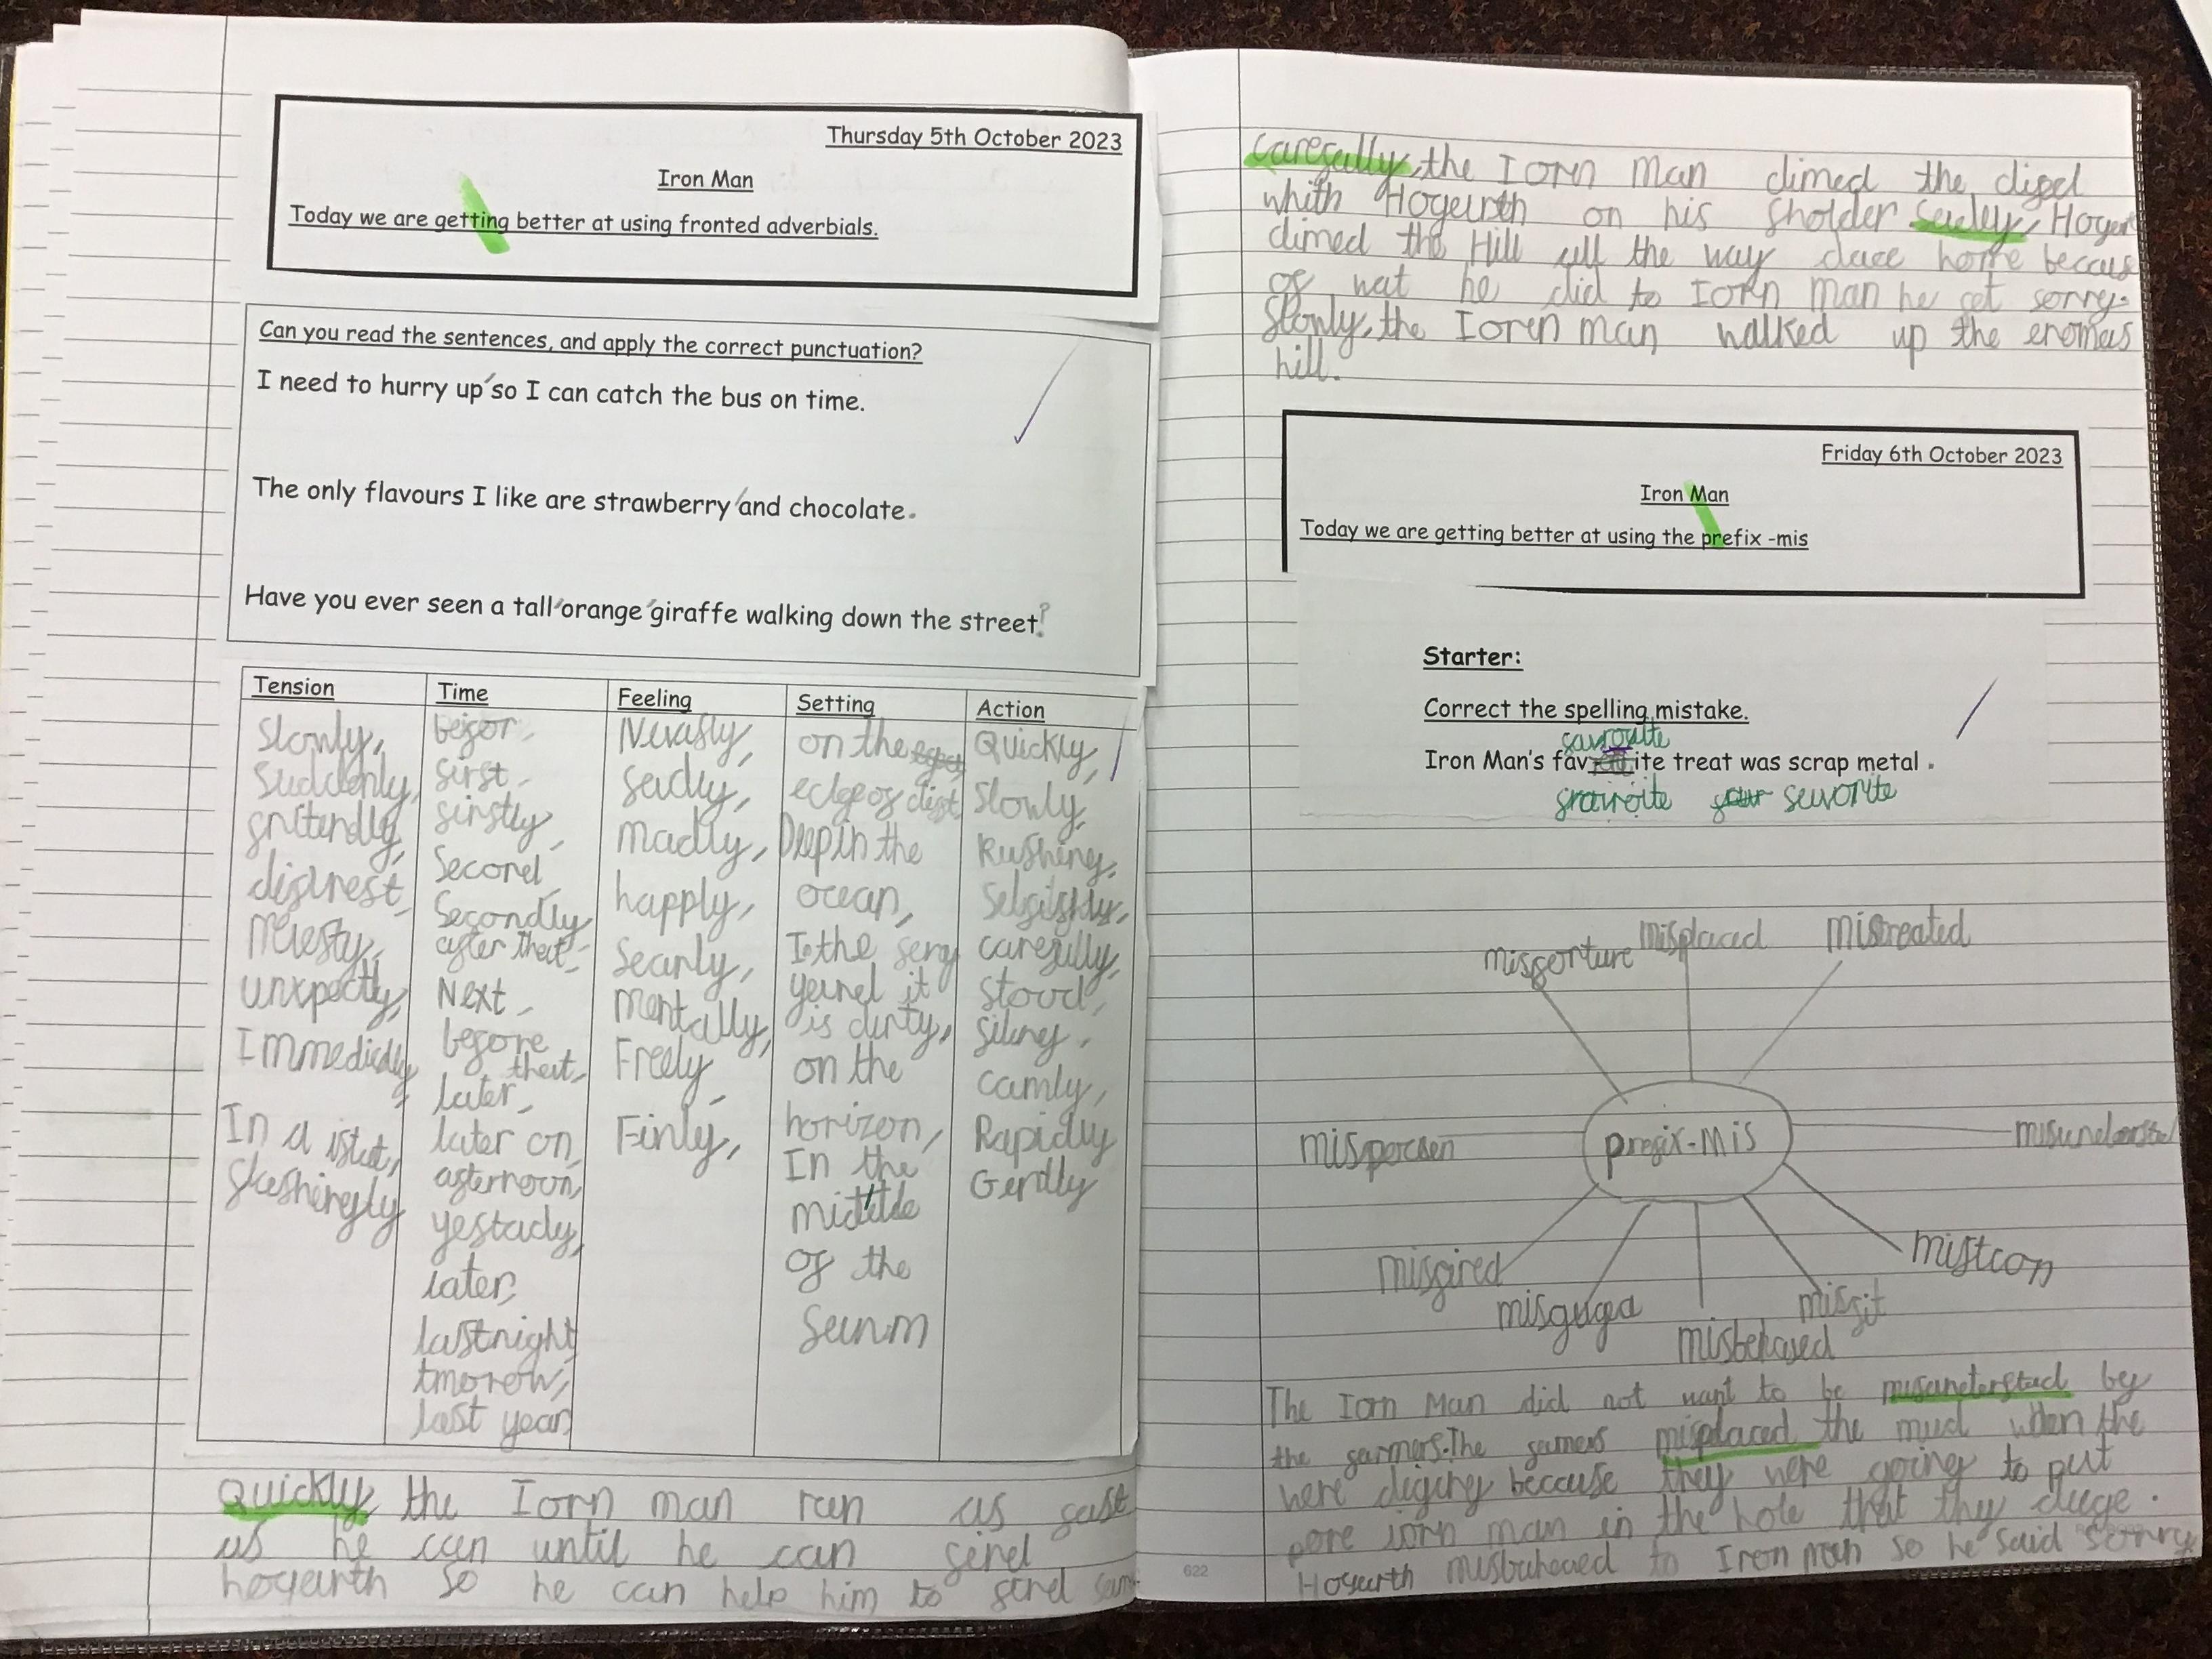 Thursday 5th October 2023
Iron Man
Today we are getting better at using fronted adverbials.
Can you read the sentences, and apply the correct punctuation?
I need to hurry up, so I can catch the bus on time.
The only flavours I like are strawberry, and chocolate.
Have you ever seen a tall, orange, giraffe walking down the street?
Tension
Slowly,
Suddenly,
unxpectly,
Immedidly,
In a istat,
Time
first,
firstly,
Second
Secondly,
after that,
Next,
before that,
later,
later on,
afternoon,
yestady,
later,
last night,
tmorow,
last year,
Feeling
Nevasly,
sadly,
madly,
happly,
Scarly,
Mentally,
Freely,
Finly,
Setting
on the
edge of
Deep in the
ocean,
is dirty,
on the
horizon,
In the
middle
of the
Action
Quickly,
Slowly,
Rushing,
carefully,
stood,
camly,
Rapidly
Gently
Quickly, the Iorn man ran as fast
as he can until he can find
hogarth so he can help him to find
Carefully, the Iorn Man climed the
whith Hogerth on his sholder. Sadly, Hogar
climed the Hill all the way home becaus
of wat he did to Iorn man he sorry.
Slowly, the Ioren man walked up the enomas
hill.
Friday 6th October 2023
Iron Man
Today we are getting better at using the prefix -mis
Starter:
Correct the spelling mistake.
Iron Man's fav ite treat was scrap metal.
favorite
misforture
misplaced
mistreated
prefix-Mis
misfired
misbehaved
misfit
The Iorn Man did not want to be misunderstad by
the farmers. The famers misplaced the mud when the
were diging because they were going to put
pore iorn man in the hole that thy duge.
Hogarth misbehaved to Iron man so he said sorry
622